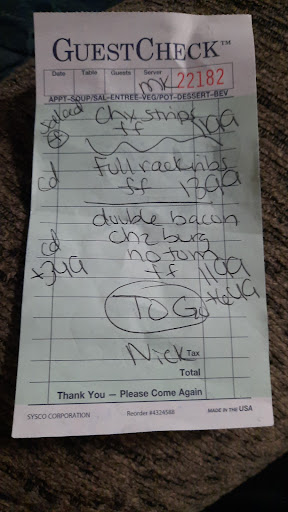 GUESTCHECK™
Date Table Guests Server
MK 22182
APPT-SOUP/SAL-ENTREE-VEG/POT-DESSERT-BEV
salad chx strips
ff 1099
cd full rack ribs
ff 1399
double bacon
cd chz burg
+399 no tom
ff 1199
TO GO
Nick Tax
Total
Thank You — Please Come Again
SYSCO CORPORATION Reorder #4324588 MADE IN THE USA